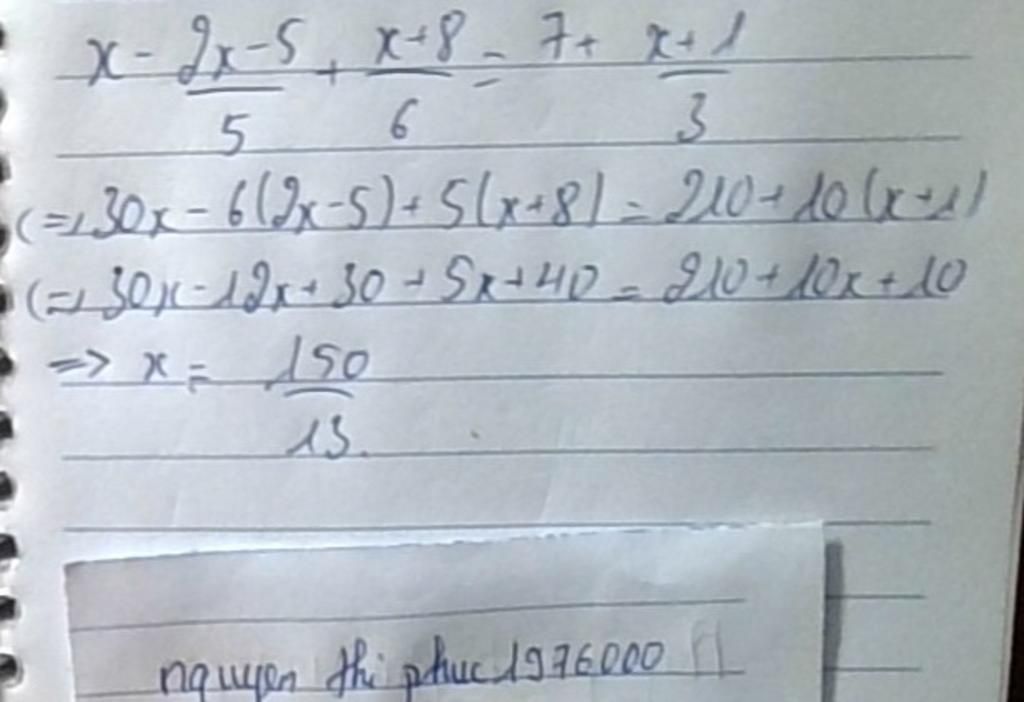 x - 2x-5/5 + x+8/6 = 7 + x+1/3
(=) 30x - 6(2x-5) + 5(x+8) = 210 + 10(x+1)
(=) 30x - 12x + 30 + 5x + 40 = 210 + 10x + 10
=> x = 150/13.
nguyen thi phuc 1976000